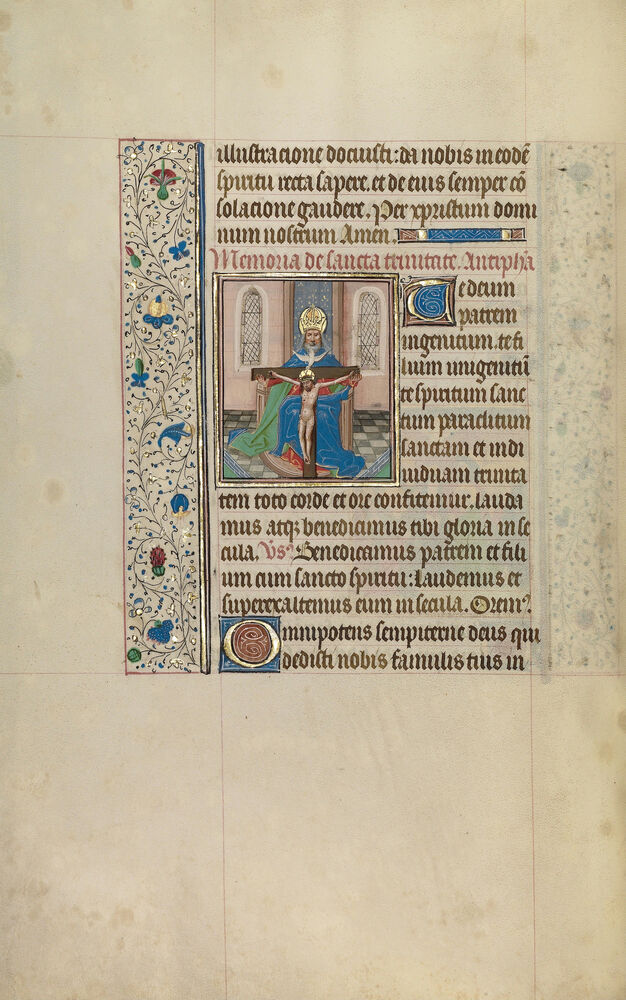 illustracione docuisti: da nobis in eodē
spiritu recta sapere. et de eius semper cō
solacione gaudere. Per xpristum domi
num nostrum Amen.
Memoria de sancta trinitate. Antipha
Te deum
patrem
ingenitum. te fi
lium unigenitū
te spiritum sanc
tum paraclitum
sanctam et indi
uiduam trinita
tem toto corde et ore confitemur. lauda
mus atqꝫ benedicimus tibi gloria in se
cula. Vs. Benedicamus patrem et fili
um cum sancto spiritu: Laudemus et
superexaltemus eum in secula. Oremꝰ.
Omnipotens sempiterne deus qui
dedisti nobis famulis tuis in